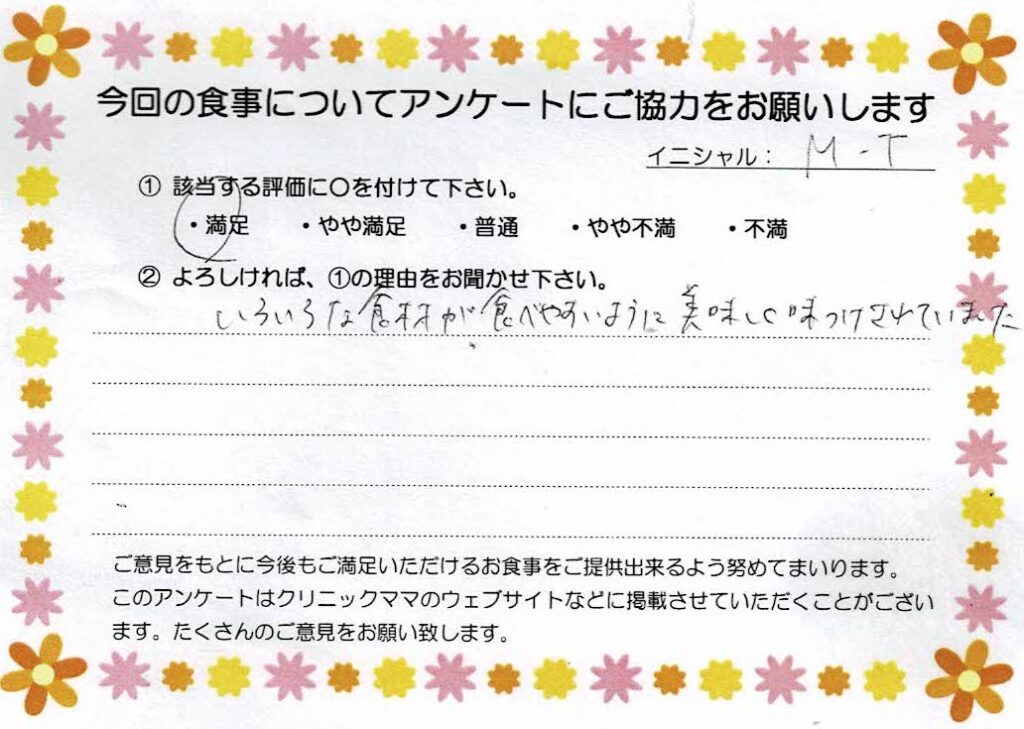 今回の食事についてアンケートにご協力をお願いします
イニシャル： M-T
① 該当する評価に〇を付けて下さい。
・満足 ・やや満足 ・普通 ・やや不満 ・不満
② よろしければ、①の理由をお聞かせ下さい。
いろいろな食材が食べやすいように美味しく味つけされていました
ご意見をもとに今後もご満足いただけるお食事をご提供出来るよう努めてまいります。
このアンケートはクリニックママのウェブサイトなどに掲載させていただくことがござい
ます。たくさんのご意見をお願い致します。